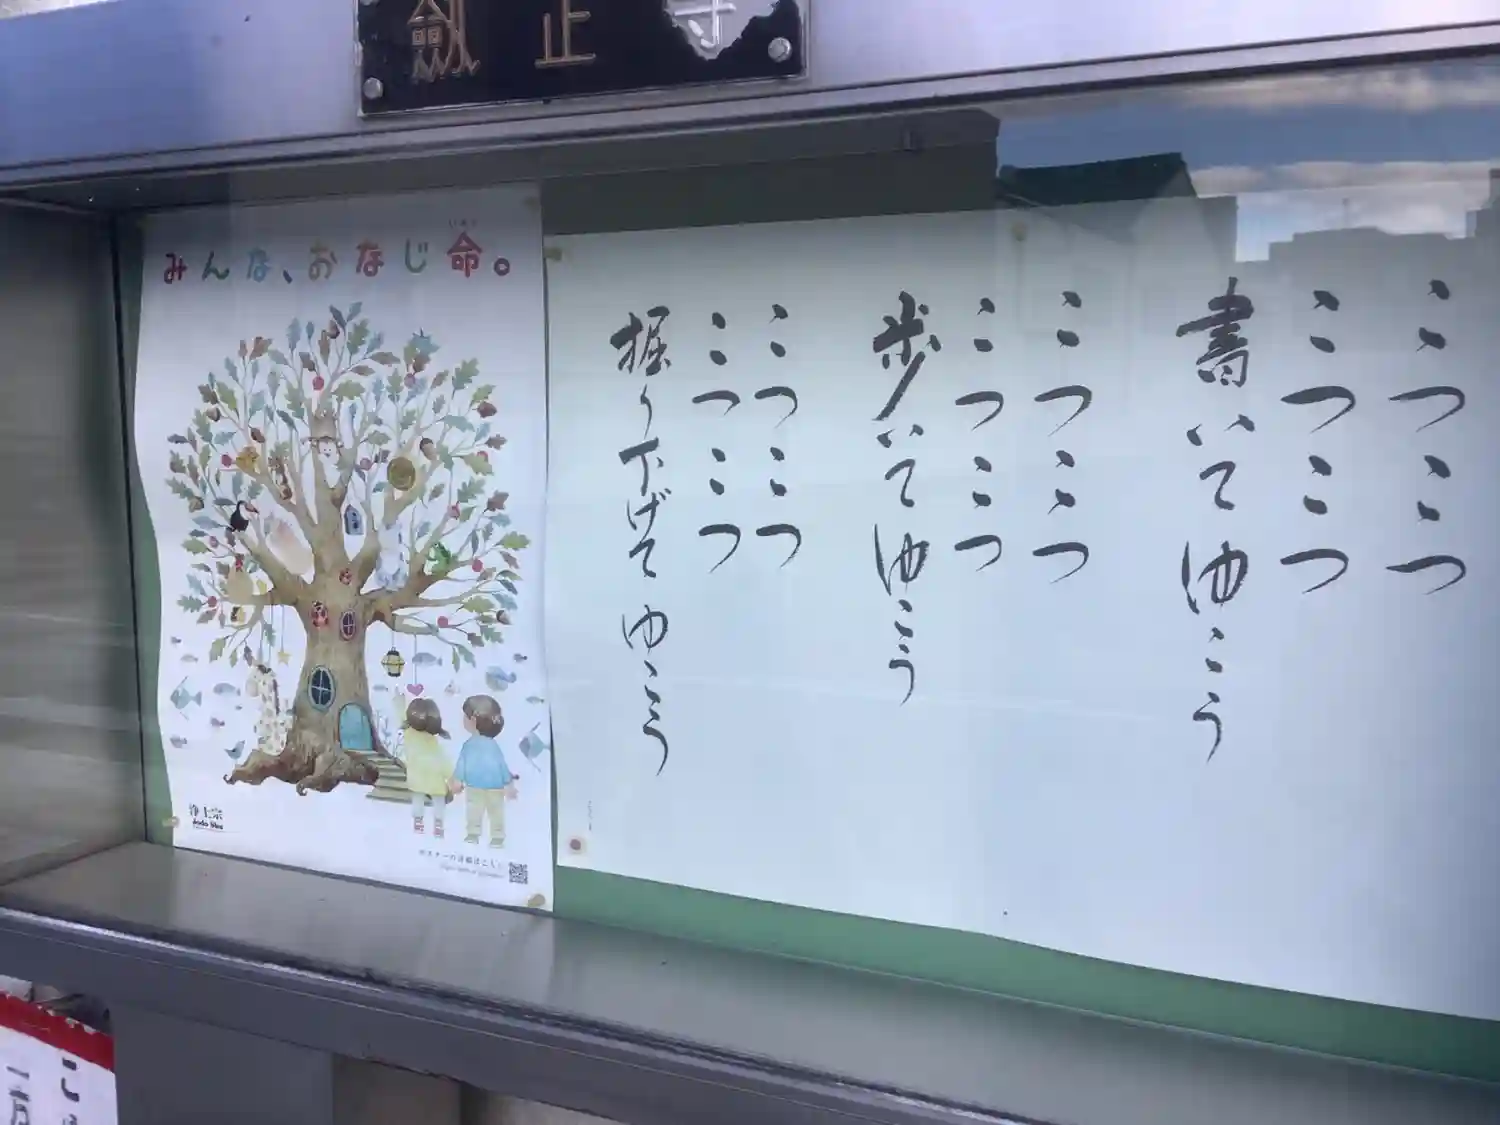 正
みんな、おなじ命。
いのち
浄土宗
Jodo Shu
ポスターの詳細はこちら
こつこつ
こつこつ
書いてゆこう
こつこつ
こつこつ
歩いてゆこう
こつこつ
こつこつ
掘り下げてゆこう